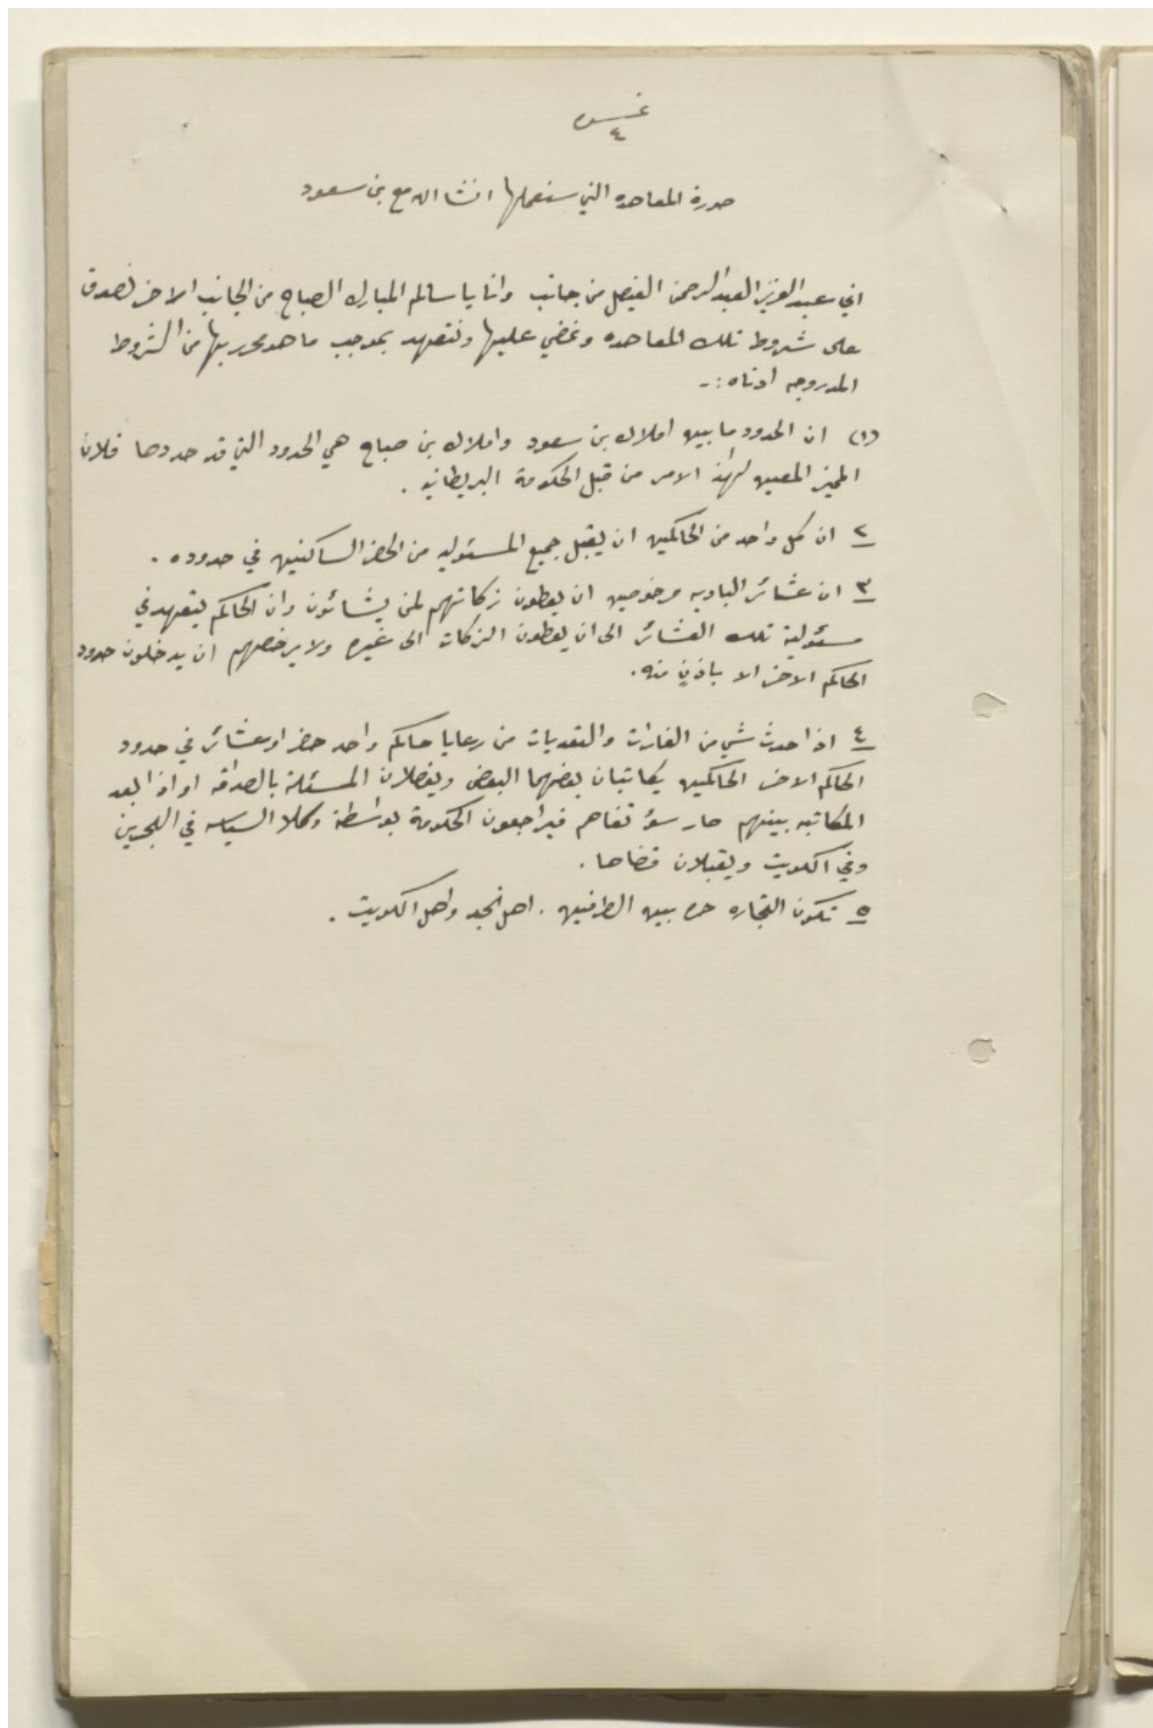 نمره
٤
صورة المعاهده التي سنعملها انشا الله مع بن سعود
اني عبد العزيز العبد الرحمن الفيصل من جانب وانا يا سالم المبارك الصباح من الجانب الاخر نصدق
على شروط تلك المعاهده ونمضي عليها ونتعهد بموجب ما هو محرر بها من الشروط
المدروجه ادناه :-
(١) ان الحدود ما بين املاك بن سعود واملاك بن صباح هي الحدود التي قد حددها فلان
المميز المعين لهذا الامر من قبل الحكومة البريطانيه .
٢ ان كل واحد من الحاكمين ان يقبل جميع المسئوليه من الحضر الساكنين في حدوده .
٣ ان عشائر الباديه مرخوصين ان يعطون زكاتهم لمن يشائون وان الحاكم يتعهد في
مسئولية تلك العشائر الى ان يعطون الزكات الى غيره ولا يرخصهم ان يدخلون حدود
الحاكم الاخر الا باذنٍ منه .
٤ اذا حدث شي من الغارات والتعديات من رعايا حاكم واحد حضر او عشائر في حدود
الحاكم الاخر الحاكمين يكاتبان بعضهما البعض ويفصلان المسئلة بالصداقه او اذا بعد
المكاتبه بينهم صار سؤ تفاهم فيراجعون الحكومة بواسطة وكلا السياسه في البحرين
وفي الكويت ويقبلان قضاها .
٥ تكون التجاره حره بين الطرفين . اهل نجد واهل الكويت .